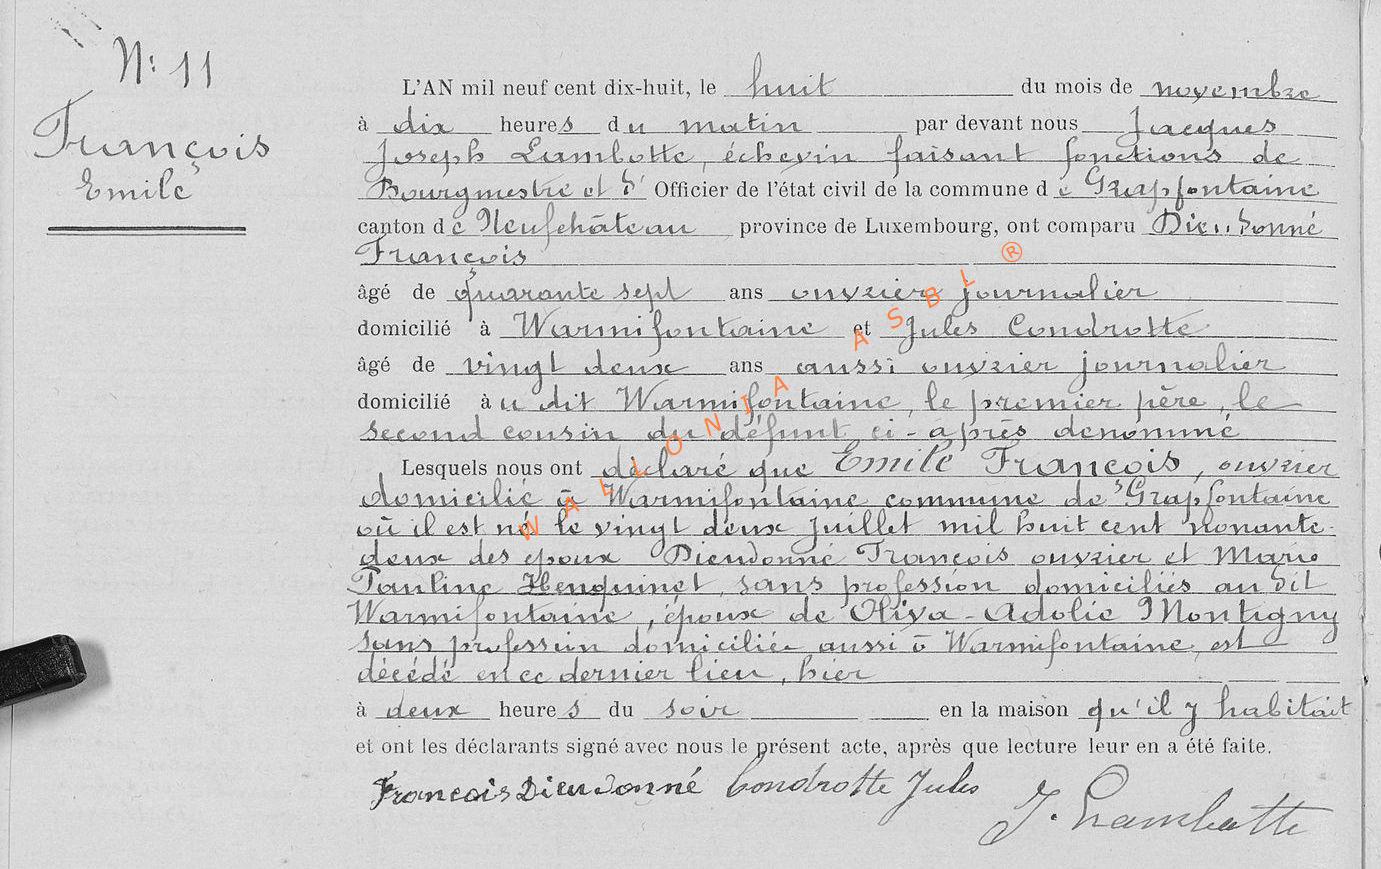 N: 11
François
Emile
L'AN mil neuf cent dix-huit, le huit du mois de novembre
à dix heures du matin par devant nous Jacques
Joseph Lambotte, échevin faisant fonctions de
Bourgmestre et d' Officier de l'état civil de la commune de Grapfontaine
canton de Neufchâteau province de Luxembourg, ont comparu Dieudonné
François
âgé de quarante sept ans ouvrier journalier
domicilié à Warmifontaine et Jules Condrotte
âgé de vingt deux ans aussi ouvrier journalier
domicilié au dit Warmifontaine, le premier père, le
second cousin du défunt ci-après dénommé
Lesquels nous ont déclaré que Emile François, ouvrier
domicilié à Warmifontaine commune de Grapfontaine
où il est né le vingt deux Juillet mil huit cent nonante-
deux des époux Dieudonné François ouvrier et Marie
Pauline Henquinet, sans profession domiciliés au dit
Warmifontaine, époux de Oliva-Adolie Montigny
sans profession domiciliée aussi à Warmifontaine, est
décédé en ce dernier lieu, hier
à deux heures du soir en la maison qu'il y habitait
et ont les déclarants signé avec nous le présent acte, après que lecture leur en a été faite.
François Dieudonné Condrotte Jules
J. Lambotte
WALLONIA ASBL ®